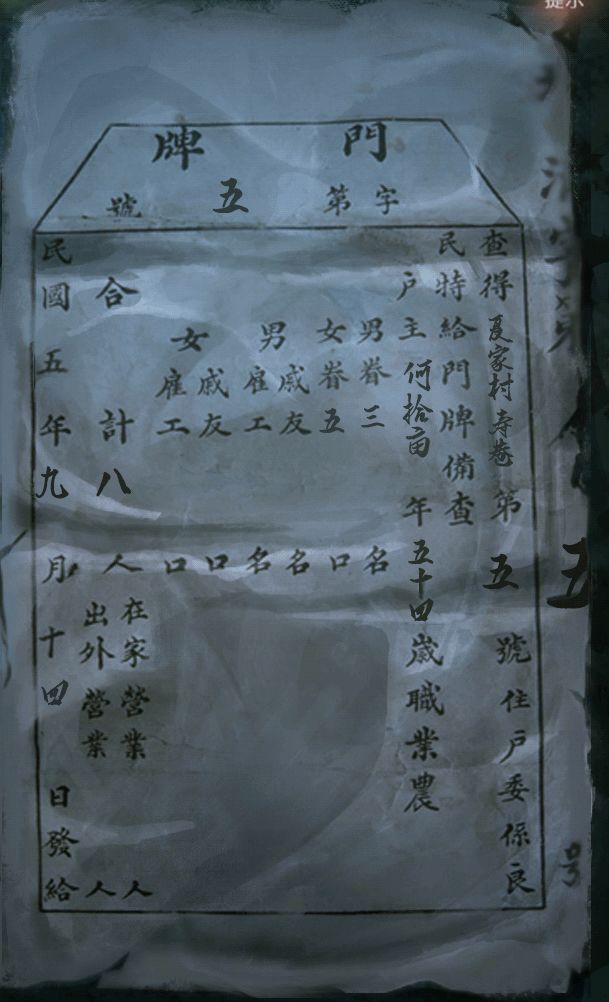 提示
門牌
字第五號
查得夏家村寺巷第五號住戶委保良
民特給門牌備查
戶主何拾亩年五十四歲職業農
男眷三名
女眷五口
男
戚友名
雇工名
女
戚友口
雇工口
合計八人
在家營業人
出外營業人
民國五年九月十四日發給
五
号